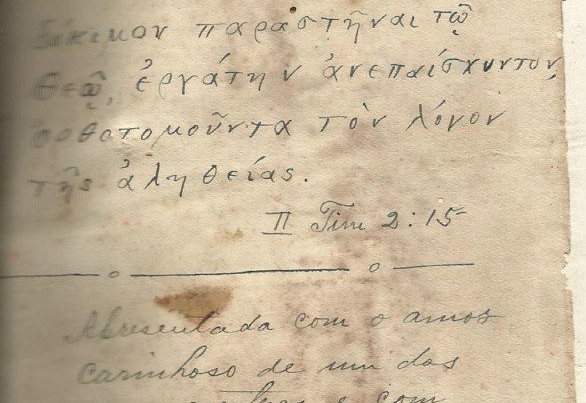 δόκιμον παραστῆναι τῷ
Θεῷ, ἐργάτην ἀνεπαίσχυντον,
ὀρθοτομοῦντα τὸν λόγον
τῆς ἀληθείας.
II Tim 2:15
Apresentada com o amor
carinhoso de um dos
e com